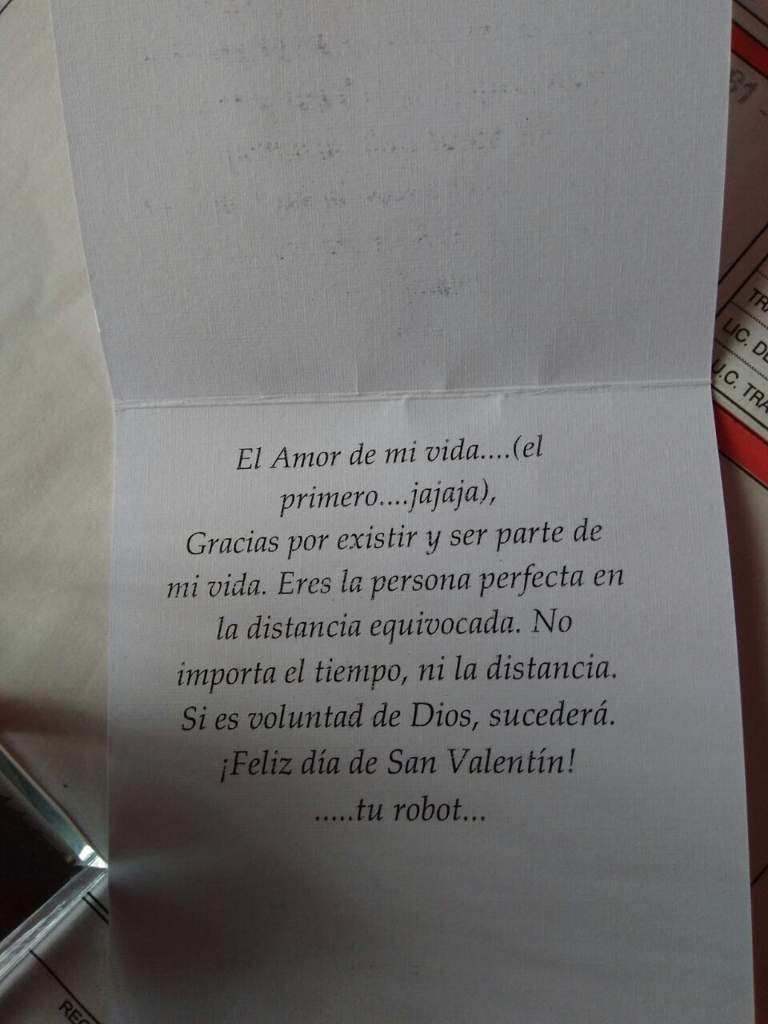 El Amor de mi vida....(el
primero....jajaja),
Gracias por existir y ser parte de
mi vida. Eres la persona perfecta en
la distancia equivocada. No
importa el tiempo, ni la distancia.
Si es voluntad de Dios, sucederá.
¡Feliz día de San Valentín!
.....tu robot...
LIC. DE
U.C. TRA